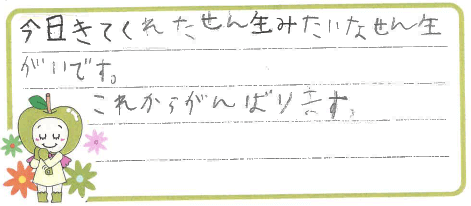 今日きてくれたせん生みたいなせん生
がいです。
これからがんばります。